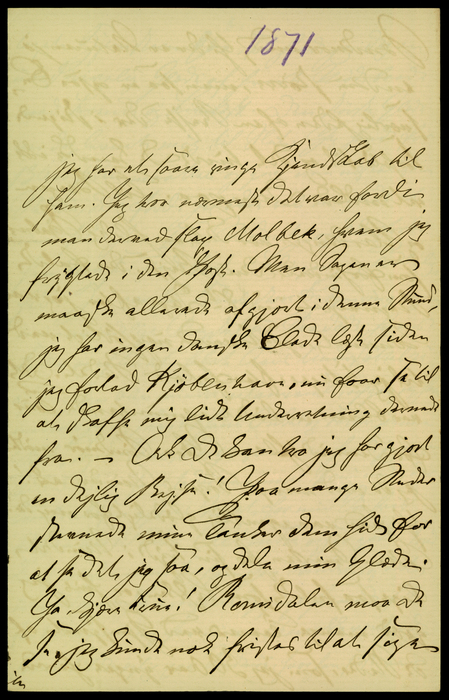 1871
jeg har alt saare ringe Kjendskab til
ham. Jeg tror nærmest det var fordi
man derved slap Molbek, hvem jeg
frygtede i den Post. Men Sagen er
maaske allerede afgjort i denne Stund,
jeg har ingen danske Blade læst siden
jeg forlod Kjøbenhavn, nu faar se til
at skaffe mig lidt Underretning dernede
fra. — Ach De kan tro jeg har gjort
en dejlig Rejse! Paa mange Steder
stævnede mine Tanker Dem hid for
at se det, jeg saa, og dele min Glæde.
Ja kjære Ven! Romsdalen maa De
se, jeg kunde nok fristes til at tage